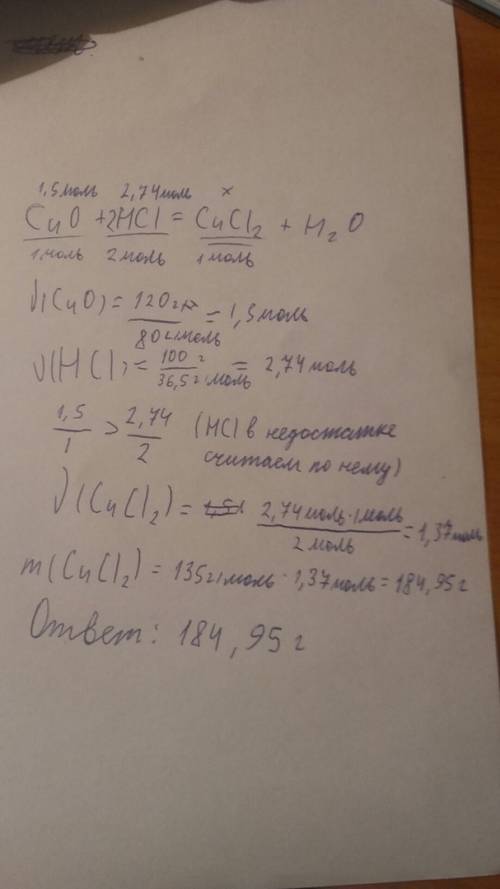 1,5моль 2,74моль x
CuO + 2HCl = CuCl₂ + H₂O
1моль 2моль 1моль
ν(CuO) = 120г / 80г/моль = 1,5моль
ν(HCl) = 100г / 36,5г/моль = 2,74моль
1,5/1 > 2,74/2 (HCl в недостатке
считаем по нему)
ν(CuCl₂) = 2,74моль·1моль / 2моль = 1,37моль
m(CuCl₂) = 135г/моль · 1,37моль = 184,95г
Ответ: 184,95г